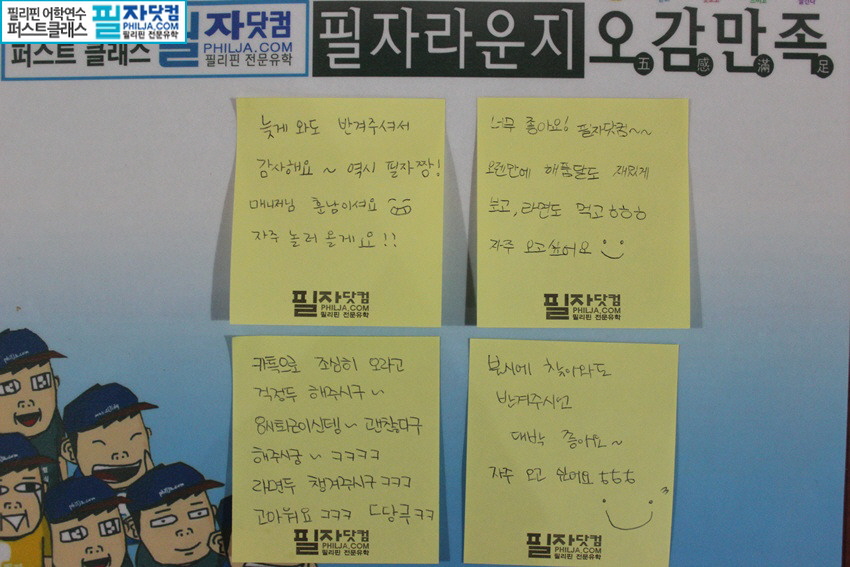 필리핀 어학연수
퍼스트클래스
필자닷컴
PHILJA.COM
필리핀 전문유학
퍼스트 클래스
필자닷컴
PHILJA.COM
필리핀 전문유학
필자라운지
오감만족
五感滿足
늦게 와도 반겨주셔서
감사해요 ~ 역시 필자짱!
매니저님 훈남이셔요
자주 놀러 올게요!!
필자닷컴
PHILJA.COM
필리핀 전문유학
너무 좋아요! 필자닷컴~~
오랜만에 해품달도 재밌게
보고, 라면도 먹고 ㅎㅎㅎ
자주 오고싶어요
필자닷컴
PHILJA.COM
필리핀 전문유학
카톡으로 조심히 오라고
걱정두 해주시구~
8시퇴근이신뎅~ 괜찮다구
해주시궁~ ㅋㅋㅋㅋ
라면두 챙겨주시구 ㅋㅋㅋ
고마워요 ㅋㅋㅋ ㄷ당구ㅋㅋ
필자닷컴
PHILJA.COM
필리핀 전문유학
불시에 찾아와도
반겨주시언
대박 좋아요~
자주 오고 싶어요 ㅎㅎㅎ
필자닷컴
PHILJA.COM
필리핀 전문유학
philja.com
philja.com